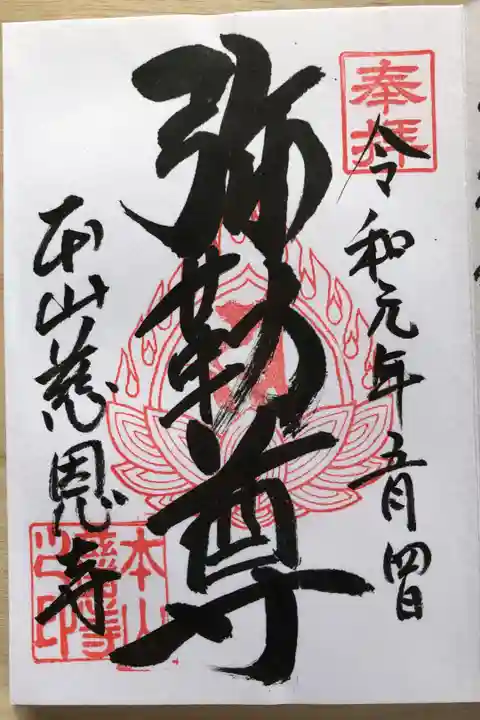 奉拝
令和元年五月四日
弥勒尊
本山慈恩寺
本山
慈恩寺
之印